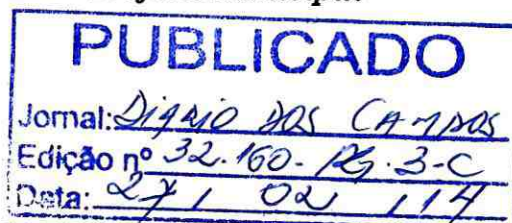 PUBLICADO
Jornal: Diário dos Campos
Edição nº 32.160 - Pg. 3-C
Data: 27 / 02 / 14